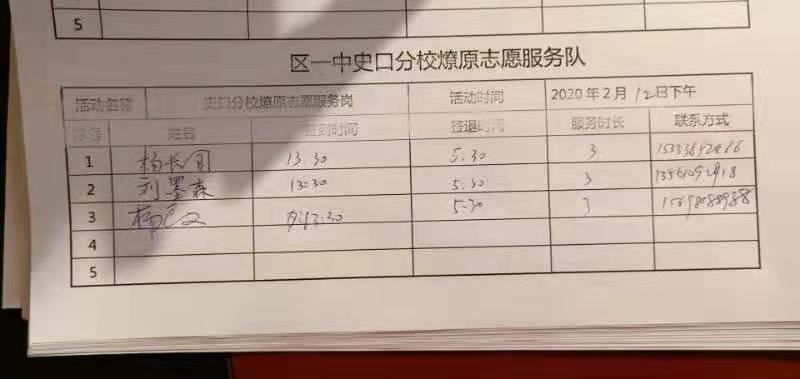 5
区一中史口分校燎原志愿服务队
活动名称 史口分校燎原志愿服务岗 活动时间 2020年2月12日下午
序号 姓名 签到时间 签退时间 服务时长 联系方式
1 杨长 13.30 5.30 3
2 刘墨森 13:30 5.30 3
3 杨 13.30 5.30 3
4
5